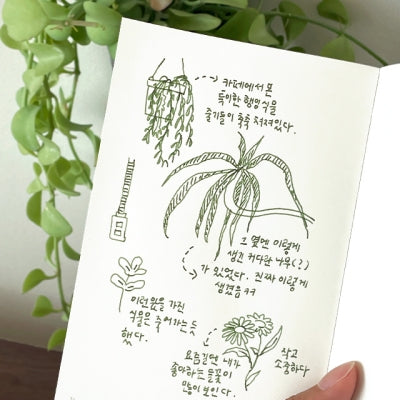 카페에서 본
특이한 행잉 식물
줄기들이 축축 쳐져있다.
그 옆엔 이렇게
생긴 커다란 나무(?)
가 있었다. 진짜 이렇게
생겼음ㅋㅋ
이런 잎을 가진
식물은 죽어가는 듯
했다.
요즘 길면 내가
좋아하는 들꽃이
많이 보인다.
작고
소중하다